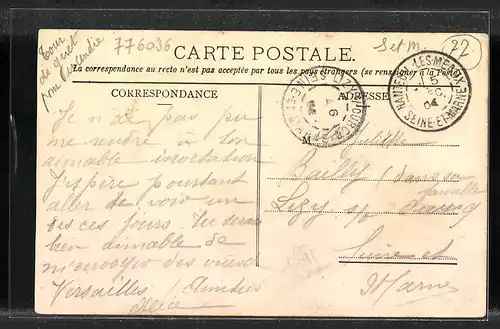 776036
Set M.
22
CARTE POSTALE.
La correspondance au recto n'est pas acceptée par tous les pays étrangers (se renseigner à la Poste)
CORRESPONDANCE
ADRESSE
NANTEUIL-LES-MEAUX
15
04
SEINE-ET-MARNE
M
Je n'ai pas pu
me rendre à ton
aimable invitation
J'espère pourtant
aller te voir un
de ces jours. Tu serais
bien aimable de
m'envoyer des vues de
Versailles / Amitiés
Alice
Bailly / dans sa
famille
Lizy s/ Ourcq
Seine et
Marne